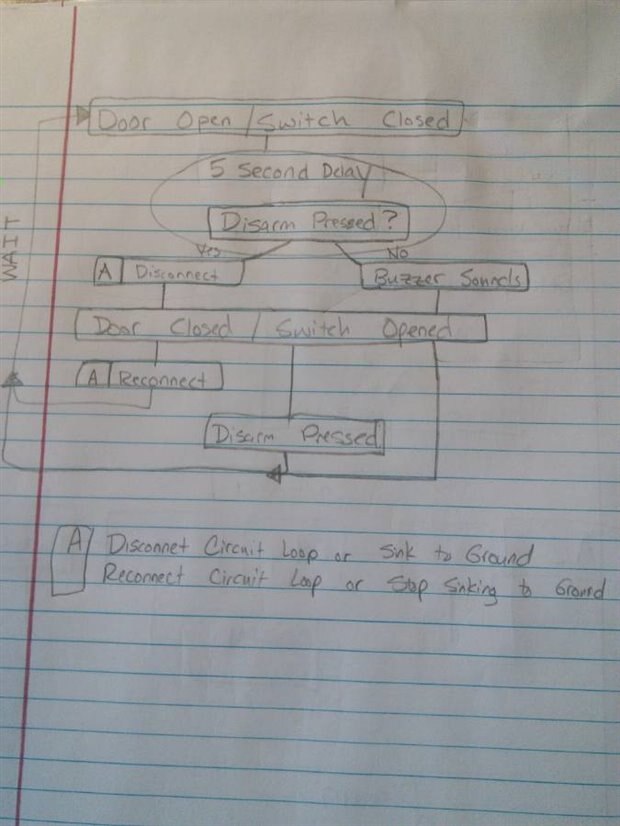 Door Open / Switch Closed
5 Second Delay
Disarm Pressed?
Yes No
A Disconnect
Buzzer Sounds
WAIT
Door Closed / Switch Opened
A Reconnect
Disarm Pressed
A Disconnet Circuit Loop or Sink to Ground
Reconnect Circuit Loop or Stop Sinking to Ground